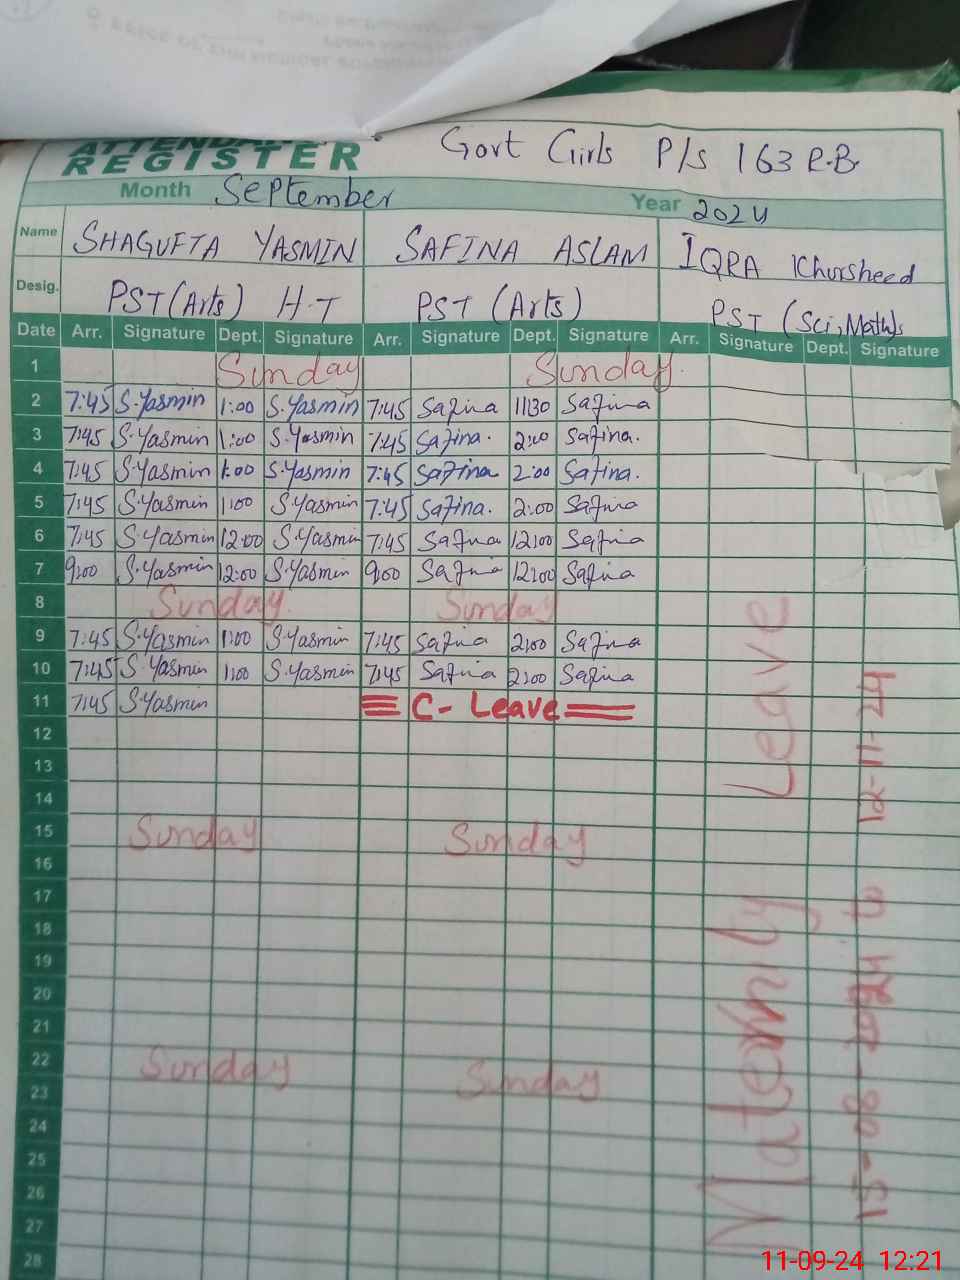 ATTENDANCE
REGISTER Govt Girls P/S 163 R.B
Month September Year 2024
Name SHAGUFTA YASMIN SAFINA ASLAM IQRA Khursheed
Desig. PST (Arts) H-T PST (Arts) PST (Sci, Math)s
Date Arr. Signature Dept. Signature Arr. Signature Dept. Signature Arr. Signature Dept. Signature
1 Sunday Sunday
2 7:45 S.Yasmin 1:00 S.Yasmin 7:45 Safina 11:30 Safina
3 7:45 S.Yasmin 1:00 S.Yasmin 7:45 Safina. 2:00 Safina.
4 7:45 S.Yasmin 1:00 S.Yasmin 7:45 Safina 2:00 Safina.
5 7:45 S.Yasmin 1:00 S.Yasmin 7:45 Safina. 2:00 Safina
6 7:45 S.Yasmin 12:00 S.Yasmin 7:45 Safina 12:00 Safina
7 9:00 S.Yasmin 12:00 S.Yasmin 9:00 Safina 12:00 Safina
8 Sunday Sunday
9 7:45 S.Yasmin 1:00 S.Yasmin 7:45 Safina 2:00 Safina
10 7:45 S.Yasmin 1:00 S.Yasmin 7:45 Safina 2:00 Safina
11 7:45 S.Yasmin C- Leave
12
13
14
15 Sunday Sunday
16
17
18
19
20
21
22 Sunday Sunday
23
24
25
26
27
28
Maternity Leave
15-08-2024 to 12-11-24
11-09-24 12:21